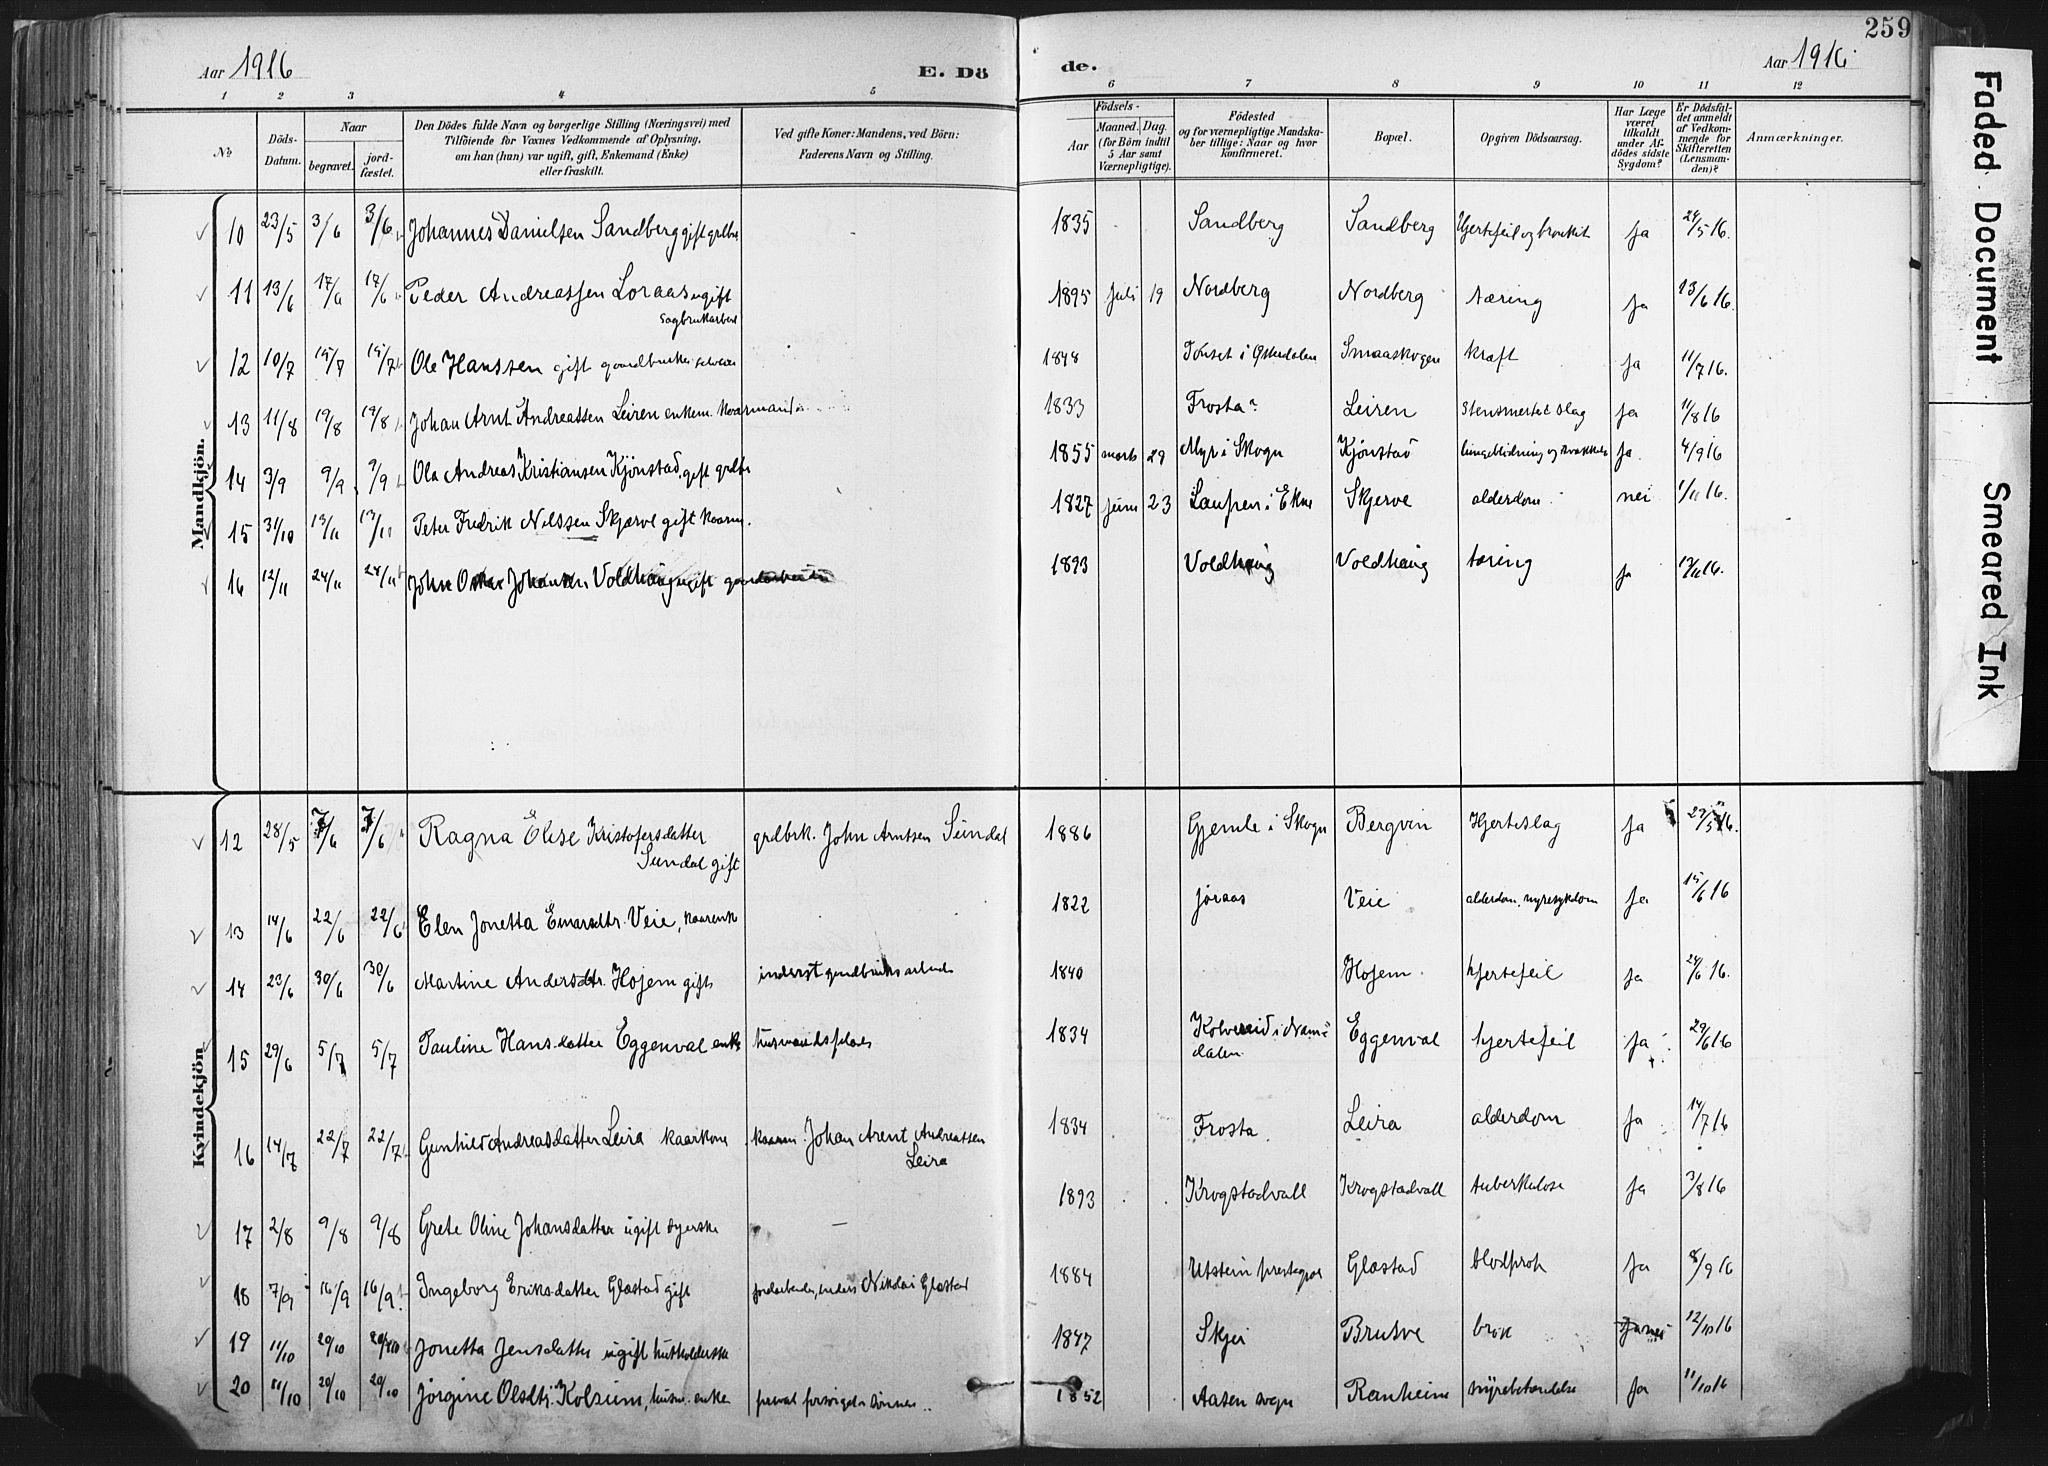 259
Aar 1916 E. Dö
de. Aar 1916.
1 2 3 4 5
6 7 8 9 10 11 12
No
Döds-Datum.
Naar
begravet.
jord-fæstet.
Den Dödes fulde Navn og borgerlige Stilling (Næringsvei) med
Tilföiende for Voxnes Vedkommende af Oplysning,
om han (hun) var ugift, gift, Enkemand (Enke)
eller fraskilt.
Ved gifte Koner: Mandens, ved Börn:
Faderens Navn og Stilling.
Födsels-
Aar
Maaned. Dag.
(for Börn indtil
5 Aar samt
Værnepligtige).
Födested
og for værnepligtige Mandska-
ber tillige: Naar og hvor
konfirmeret.
Bopæl.
Opgiven Dödsaarsag.
Har Læge
været
tilkaldt
under Af-
dödes sidste
Sygdom?
Er Dödsfal-
det anmeldt
af Vedkom-
mende for
Skifteretten
(Lensman-
den)?
Anmærkninger.
Mandkjön.
10 23/5 3/6 3/6 Johannes Danielsen Sandberg gift grdbr. 1835 Sandberg Sandberg Hjertefeil og bronkit ja 24/5 16.
11 13/6 17/6 17/6 Peder Andreassen Loraas ugift 1895 juli 19 Nordberg Nordberg tæring ja 13/6 16.
sagbrukarbeid
12 10/7 15/7 15/7 Ole Hanssen gift gaardbruker 1848 Tönset i Österdalen Smaaskogen kræft ja 11/7 16.
13 11/8 19/8 19/8 Johan Arnt Andreassen Leiren enkem. kaarmand 1833 Frosta? Leiren slag ja 11/8 16
14 3/9 9/9 9/9 Ola Andreas Kristiansen Kjönstad, gift grdbr 1855 marts 29 Myr i Skogn Kjönstad lungeblödning og ja 4/9 16
15 31/10 13/11 13/11 Peter Fredrik Nilssen Skjærve gift kaarm. 1827 juni 23 i Ekne Skjerve alderdom nei 1/11 16.
16 12/11 24/11 24/11 John Johansen Voldhaug ugift 1893 Voldhaug Voldhaug tæring ja 13/11 16.
Kvindekjön
12 28/5 7/6 7/6 Ragna Elise Kristofersdatter grdbrk. John Arntsen Sundal 1886 Gjemle i Skogn Bergvin Hjerteslag ja 29/5 16.
Sundal gift
13 14/6 22/6 22/6 Elen Jonetta Einarsdtr. Veie, kaarenk 1822 Jöraas Veie alderdom, nyresykdom ja 15/6 16
14 23/6 30/6 30/6 Martine Andersdtr. Hojem gift inderst gaardbruksarbeider 1840 Hojem hjertefeil ja 24/6 16.
15 29/6 5/7 5/7 Pauline Hansdatter Eggenval enke husmandsplads 1834 Kolvereid i Nam- Eggenval hjertefeil ja 29/6 16
dalen
16 14/7 22/7 22/7 Gunhild Andreasdatter Leira kaarkone kaarm. Johan Arent Andreassen 1834 Frosta. Leira alderdom ja 14/7 16
Leira
17 2/8 9/8 9/8 Grete Oline Johansdatter ugift syerske — 1893 Krogstadvall Krogstadvall tuberkulose ja 3/8 16
18 7/9 16/9 16/9 Ingeborg Eriksdatter Glastad gift jordarbeider, inders Nikolai Glastad 1884 Utstein prestegj. Glastad blodprop ja 8/9 16
19 11/10 20/10 20/10 Jonetta Jensdatter ugift husholderske 1847 Skjei Brusve brok ja nei 12/10 16
20 11/10 20/10 20/10 Jörgine Olsdtr. Kolsum, husm. enke forsörget sönner 1852 Aasen sogn Ranheim nyrebetændelse ja 11/10 16
Faded Document
Smeared Ink